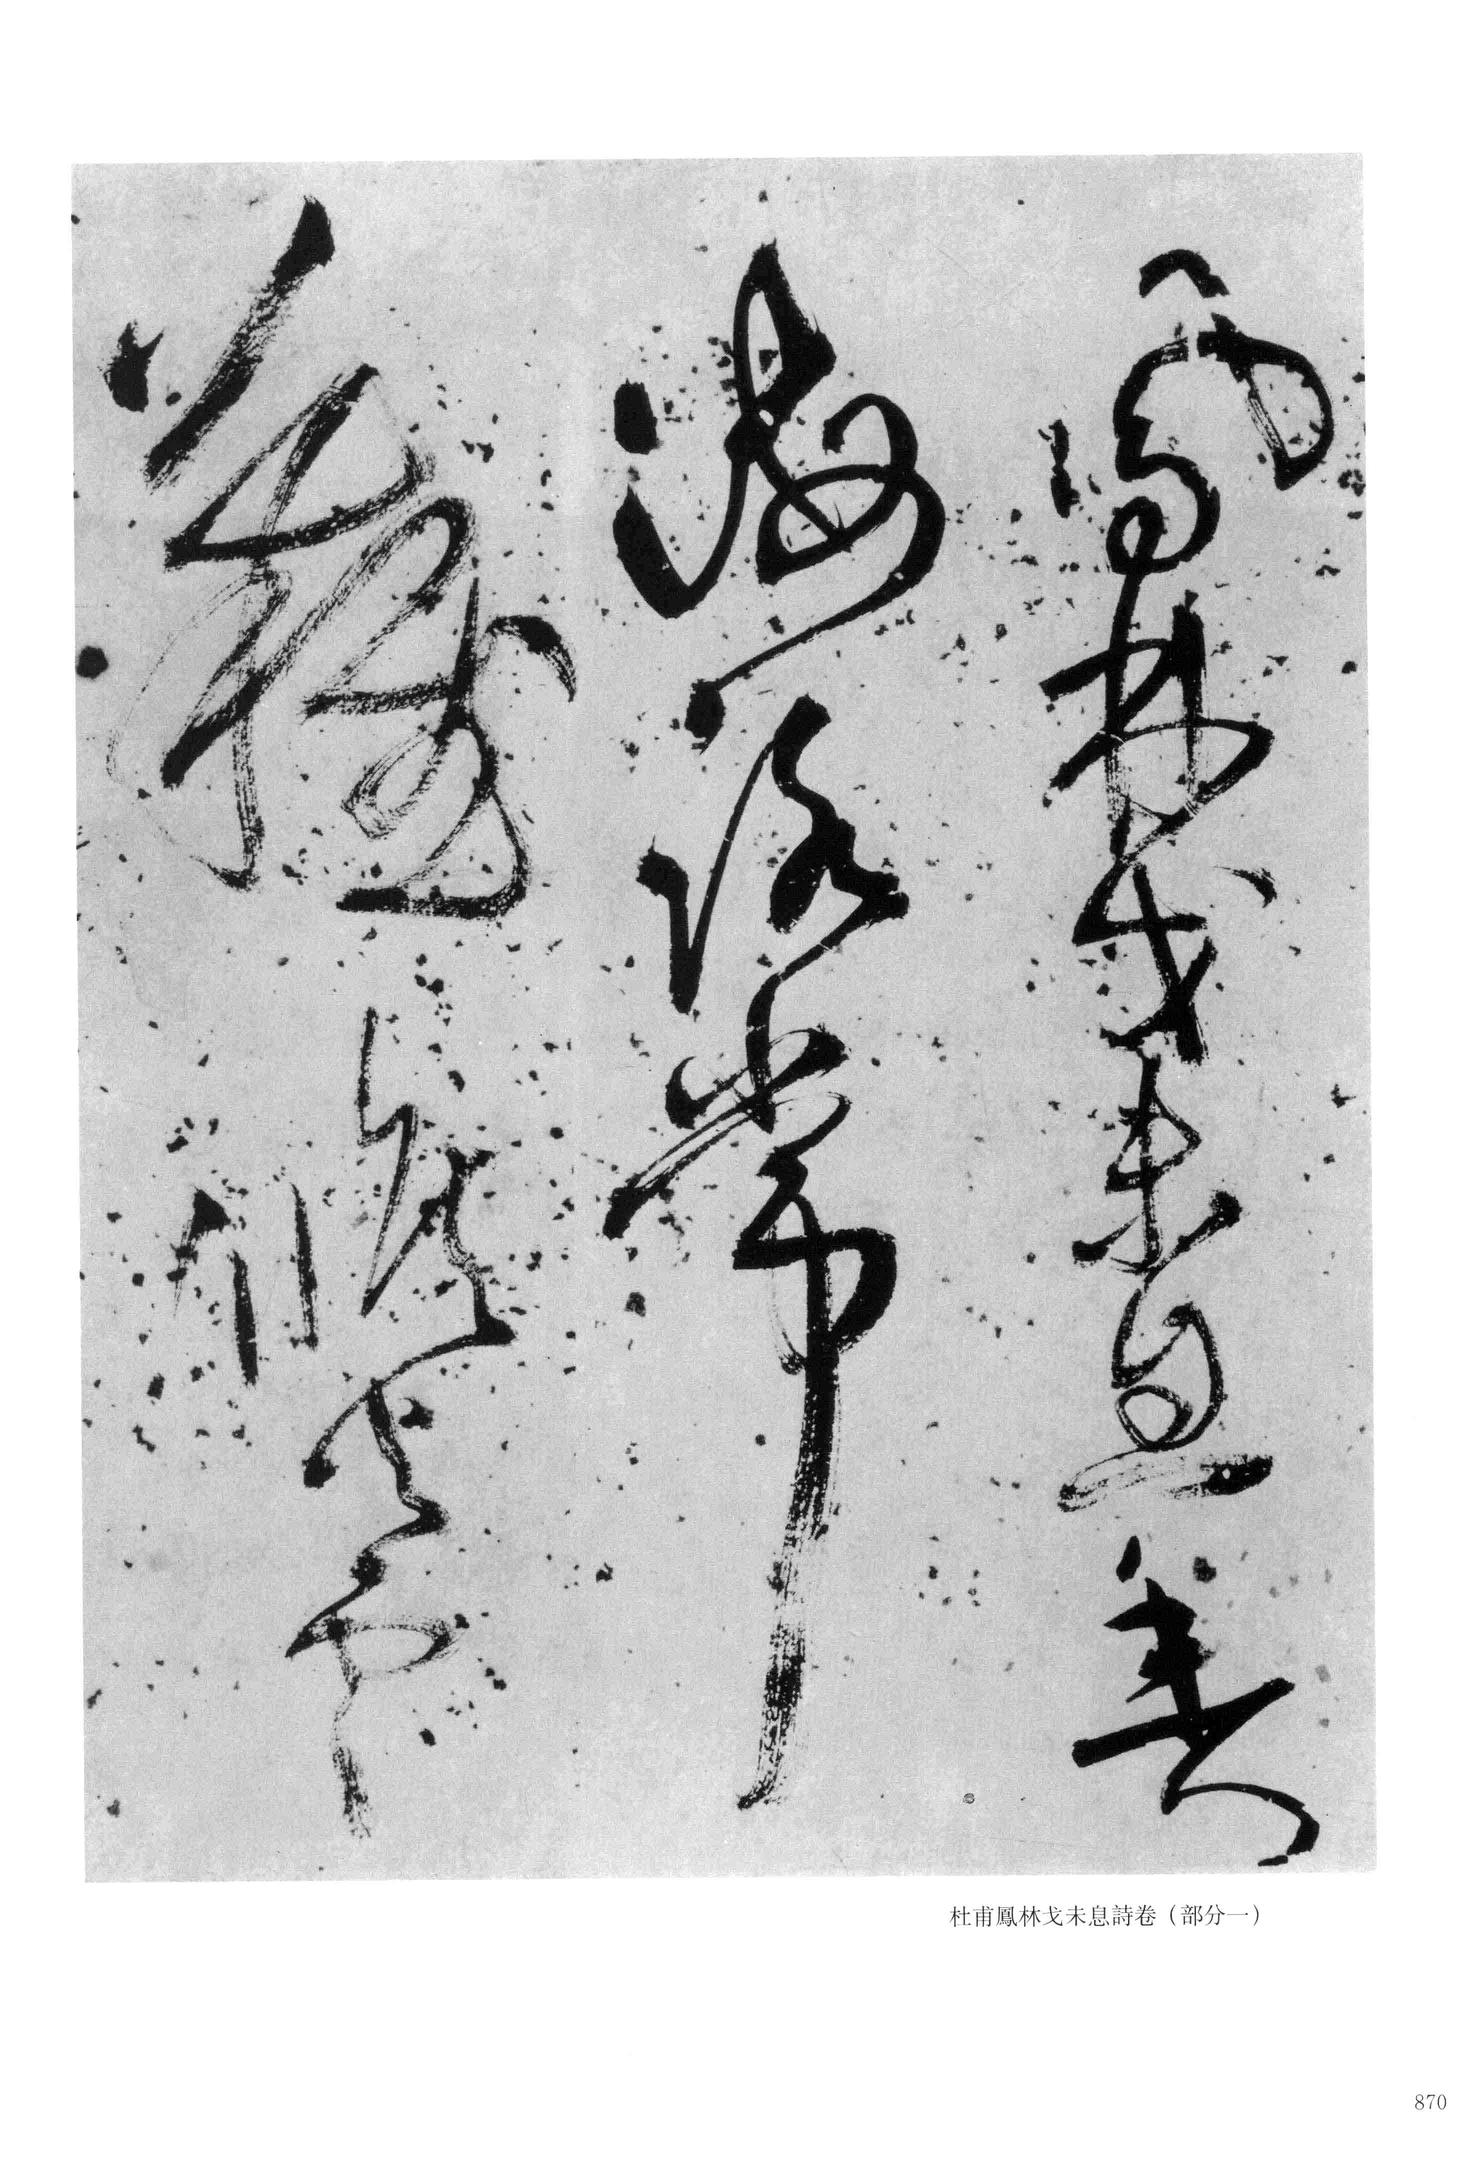 鳳林戈未息魚
海路常
難候火雲
杜甫鳳林戈未息詩卷（部分一）
870